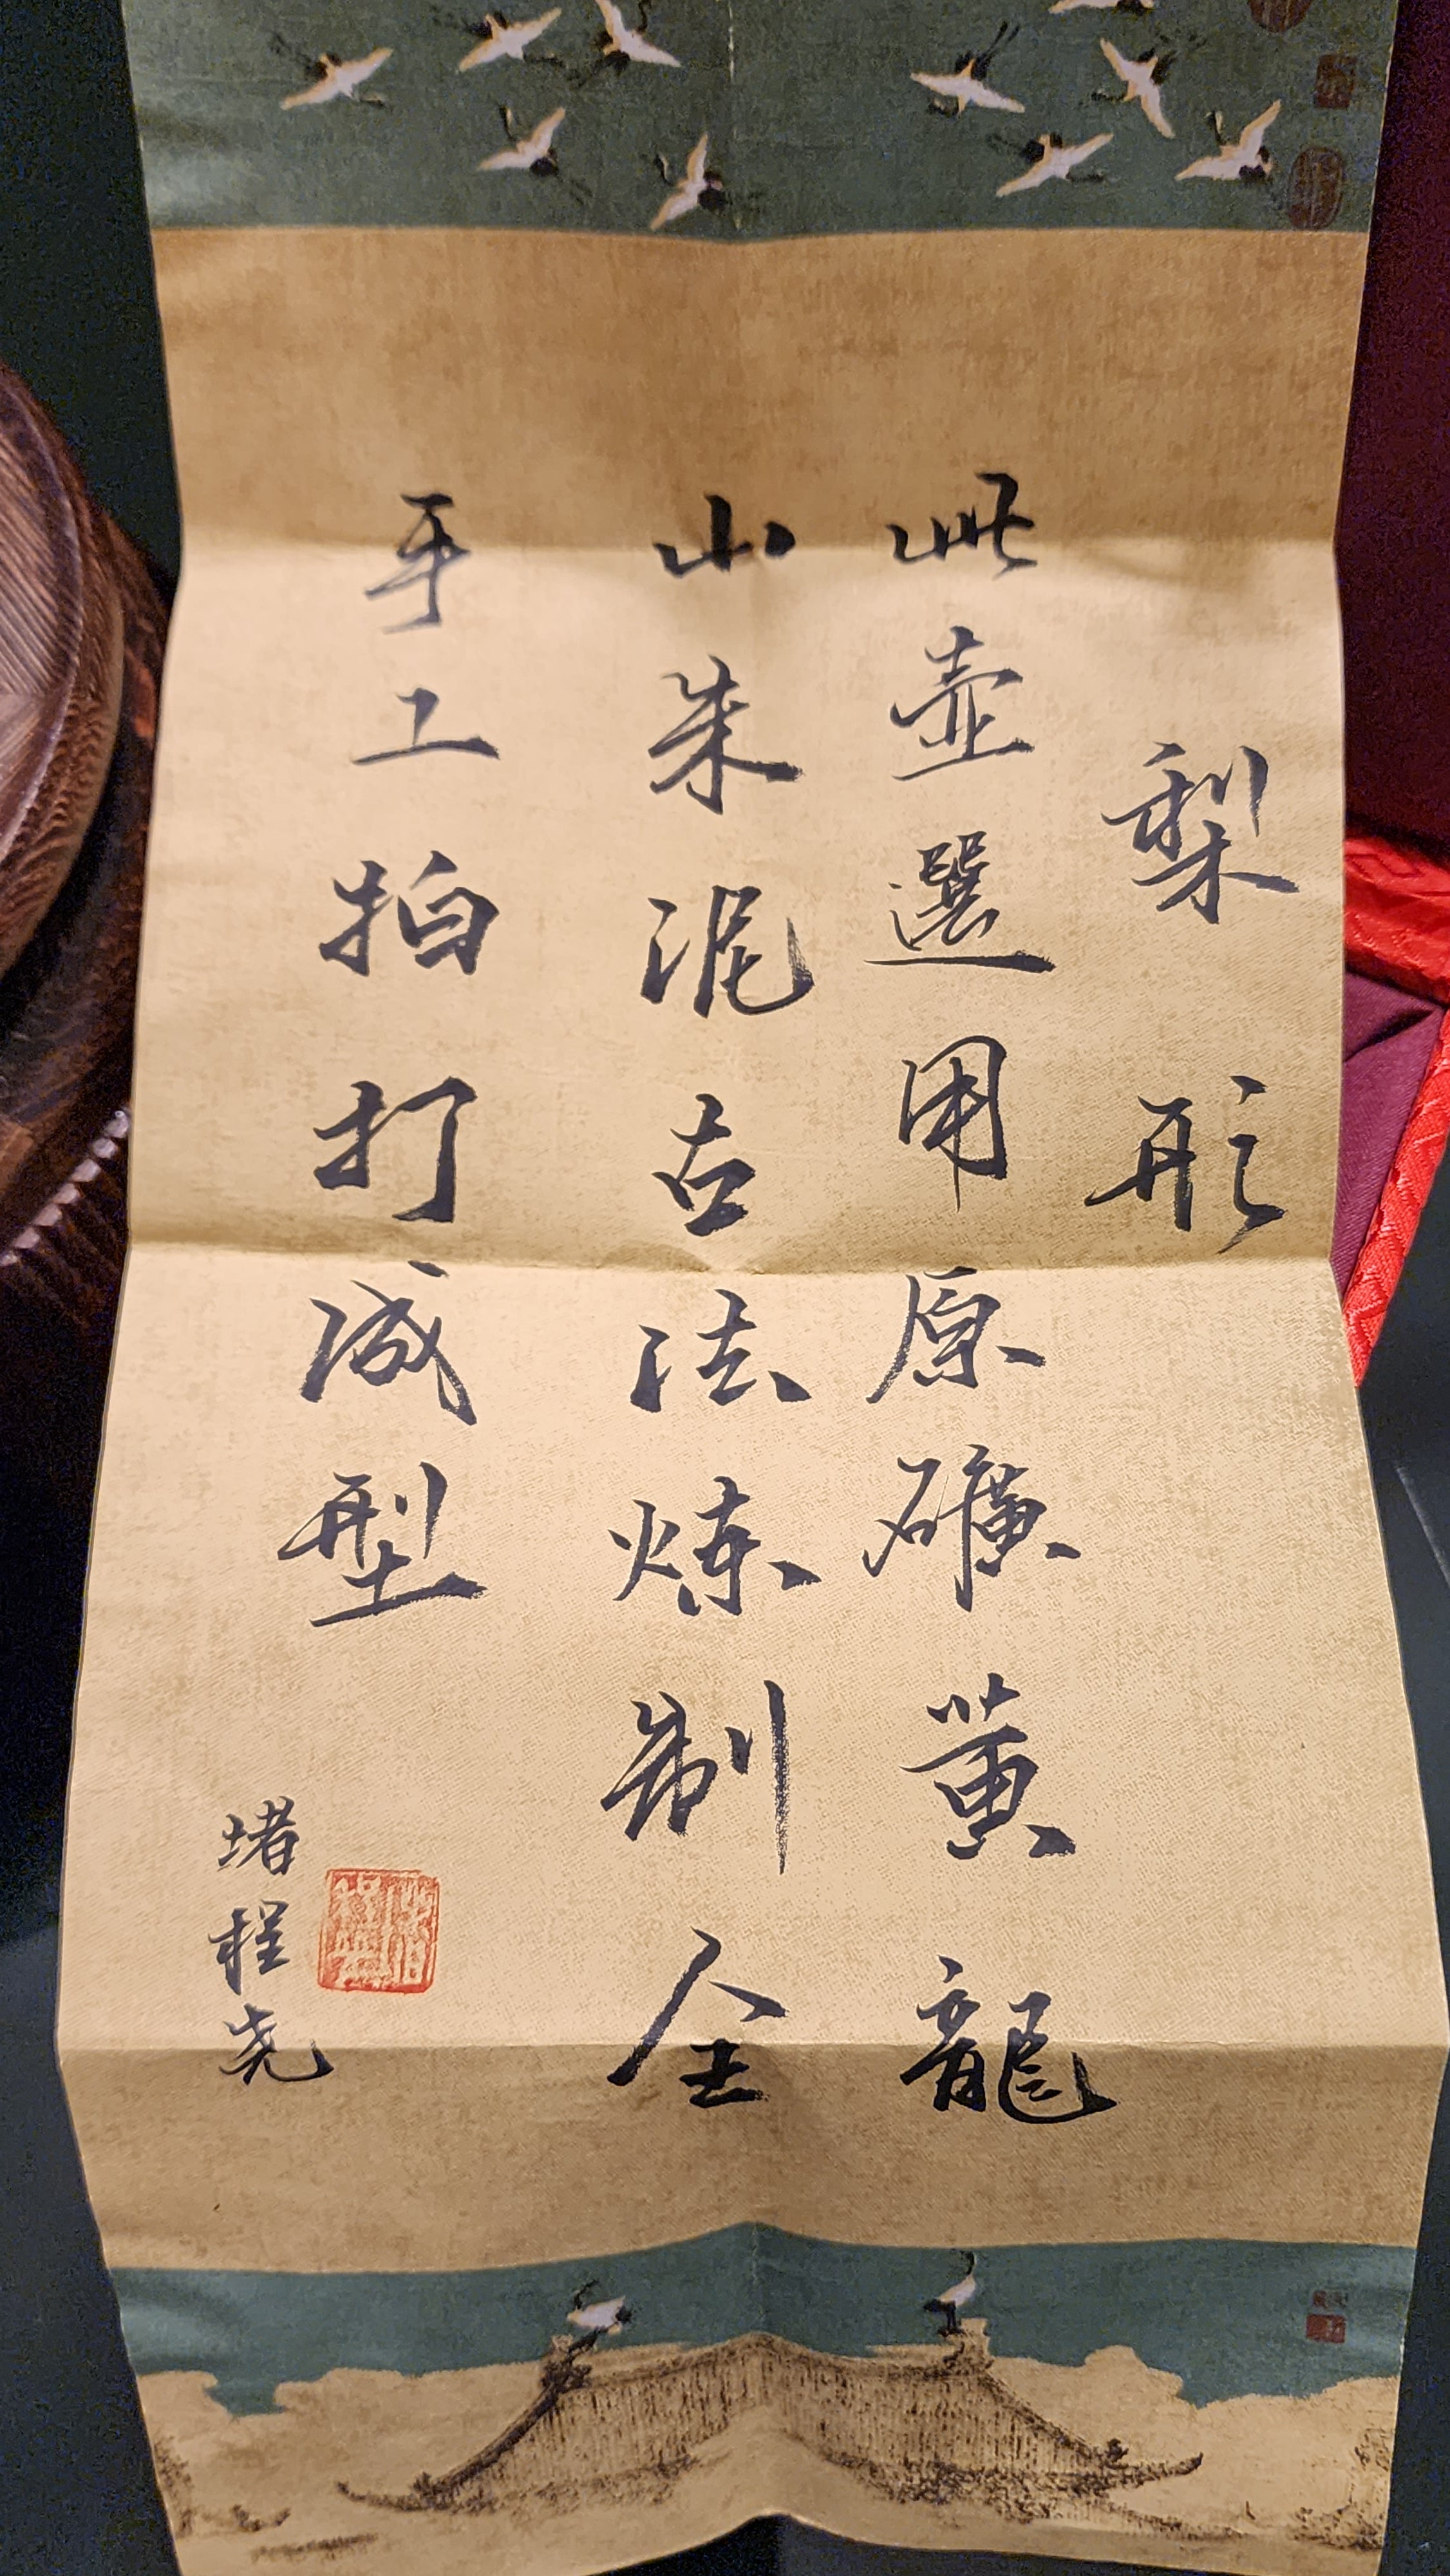 梨形
此壺選用原礦黄龍
山朱泥古法炼制全
手工拍打成型
堵程尧